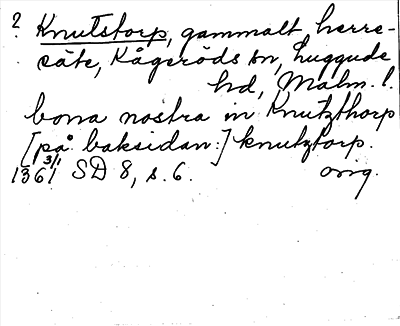 ? Knutstorp, gammalt herre-
säte, Kågeröds sn, Luggude
hd, Malm. l.
bona nostra in Knutzthorp
[på baksidan:] knutztorp.
1361 3/1 SD 8, s. 6. orig.